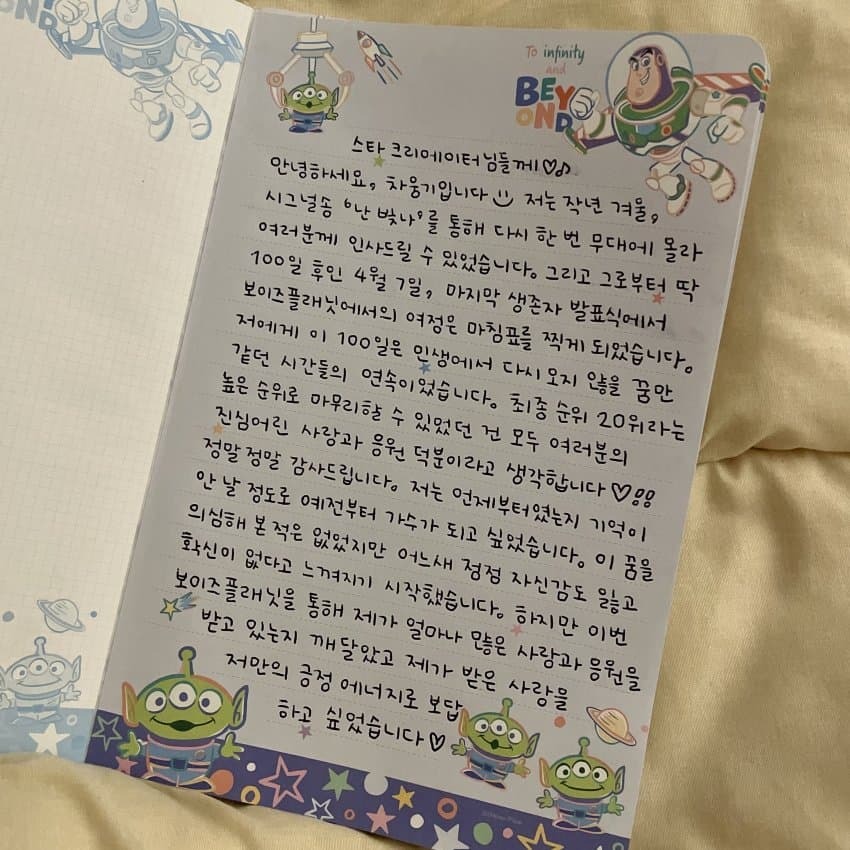 OND
To infinity
and
BEY
OND
스타 크리에이터님들께♡♪
안녕하세요, 차웅기입니다 저는 작년 겨울,
시그널송 '난 빛나'를 통해 다시 한 번 무대에 올라
여러분께 인사드릴 수 있었습니다. 그리고 그로부터 딱
100일 후인 4월 7일, 마지막 생존자 발표식에서
보이즈플래닛에서의 여정은 마침표를 찍게 되었습니다.
저에게 이 100일은 인생에서 다시 오지 않을 꿈만
같던 시간들의 연속이었습니다. 최종 순위 20위라는
높은 순위로 마무리할 수 있었던 건 모두 여러분의
진심어린 사랑과 응원 덕분이라고 생각합니다♡!!
정말정말 감사드립니다. 저는 언제부터였는지 기억이
안 날 정도로 예전부터 가수가 되고 싶었습니다. 이 꿈을
의심해 본 적은 없었지만 어느새 점점 자신감도 잃고
확신이 없다고 느껴지기 시작했습니다. 하지만 이번
보이즈플래닛을 통해 제가 얼마나 많은 사랑과 응원을
받고 있는지 깨달았고 제가 받은 사랑을
저만의 긍정 에너지로 보답
하고 싶었습니다♡